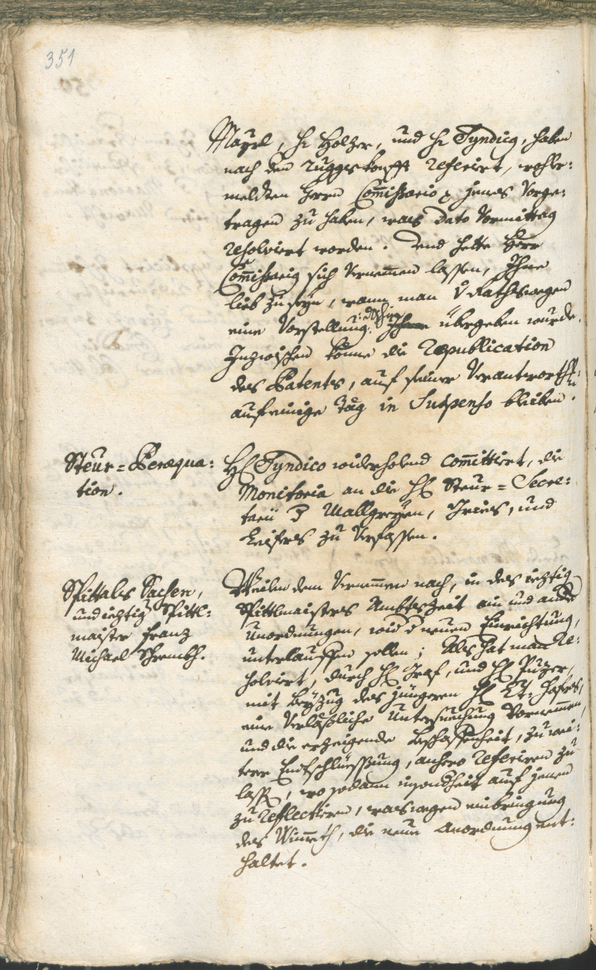 351
Mayrl, H: Holzer, und H: Syndicus, haben
nach den ruggekonfft referiert, wohlle¬
meldten Herrn Commissario jenes Vorge¬
tragen zu haben, was dato Vormittag
resolviert worden. Und hette Herr
Commissarius sich vernemmen lassen, Ihme
lieb zu seyn, wann man v: Rathswegen
eine Vorstellung übergeben wurde.
Inzwischen könne die Republication
des Patents, auf seiner Verantworth:
auf einige Täg in Suspenso bleiben.
Steur=Peræqua:
tion.
H: Syndico widerholend committiert, die
Monitoria an die H: Steur=Secre:
tarii Wallgreyen, und
zu verfassen.
Spittals Sachen,
und ietzig Spitt:
maister Franz
Michael
Weilen dem Vernemmen nach, in des ietzig
Spittlmaisters Ambtszeit ain und ande
Unordnungen, neuen Einrichtung,
unterlauffen sollen; Als hat man Re:
solviert, durch H: Graf, und H:
mit Beyzug des jüngeren H:
eine verläßliche Untersuchung vornemmen,
und die erzeigende Beschaffenheit, zu wei:
terer Entschlüessung, anhero referieren zu
lassen, wo sodann auf jenen
zu reflectieren, waswegen einbringung
des die neue Anordnung ent:
haltet.